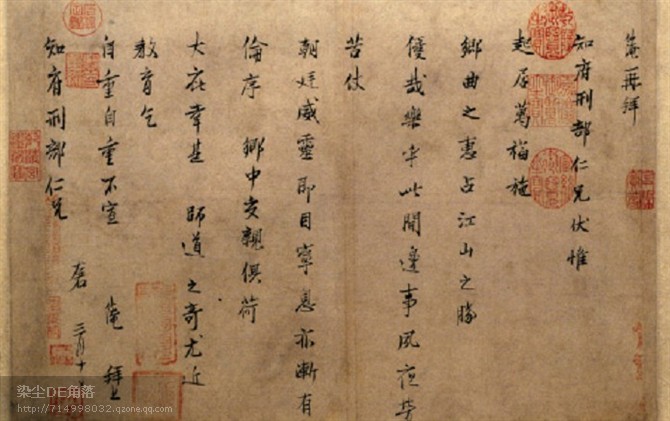 淹再拜
知府刑部仁兄伏惟
起居萬福施
鄉曲之惠占江山之勝
優哉樂乎此間邊事夙夜勞
苦仗
朝廷威靈即目寧息亦漸有
倫序 鄉中交親俱荷
大庇幸甚 師道之奇尤近
教育乞
自重自重不宣 淹 拜上
知府刑部仁兄 左右 三月十
染尘DE角落
http://714998032.qzone.qq.com